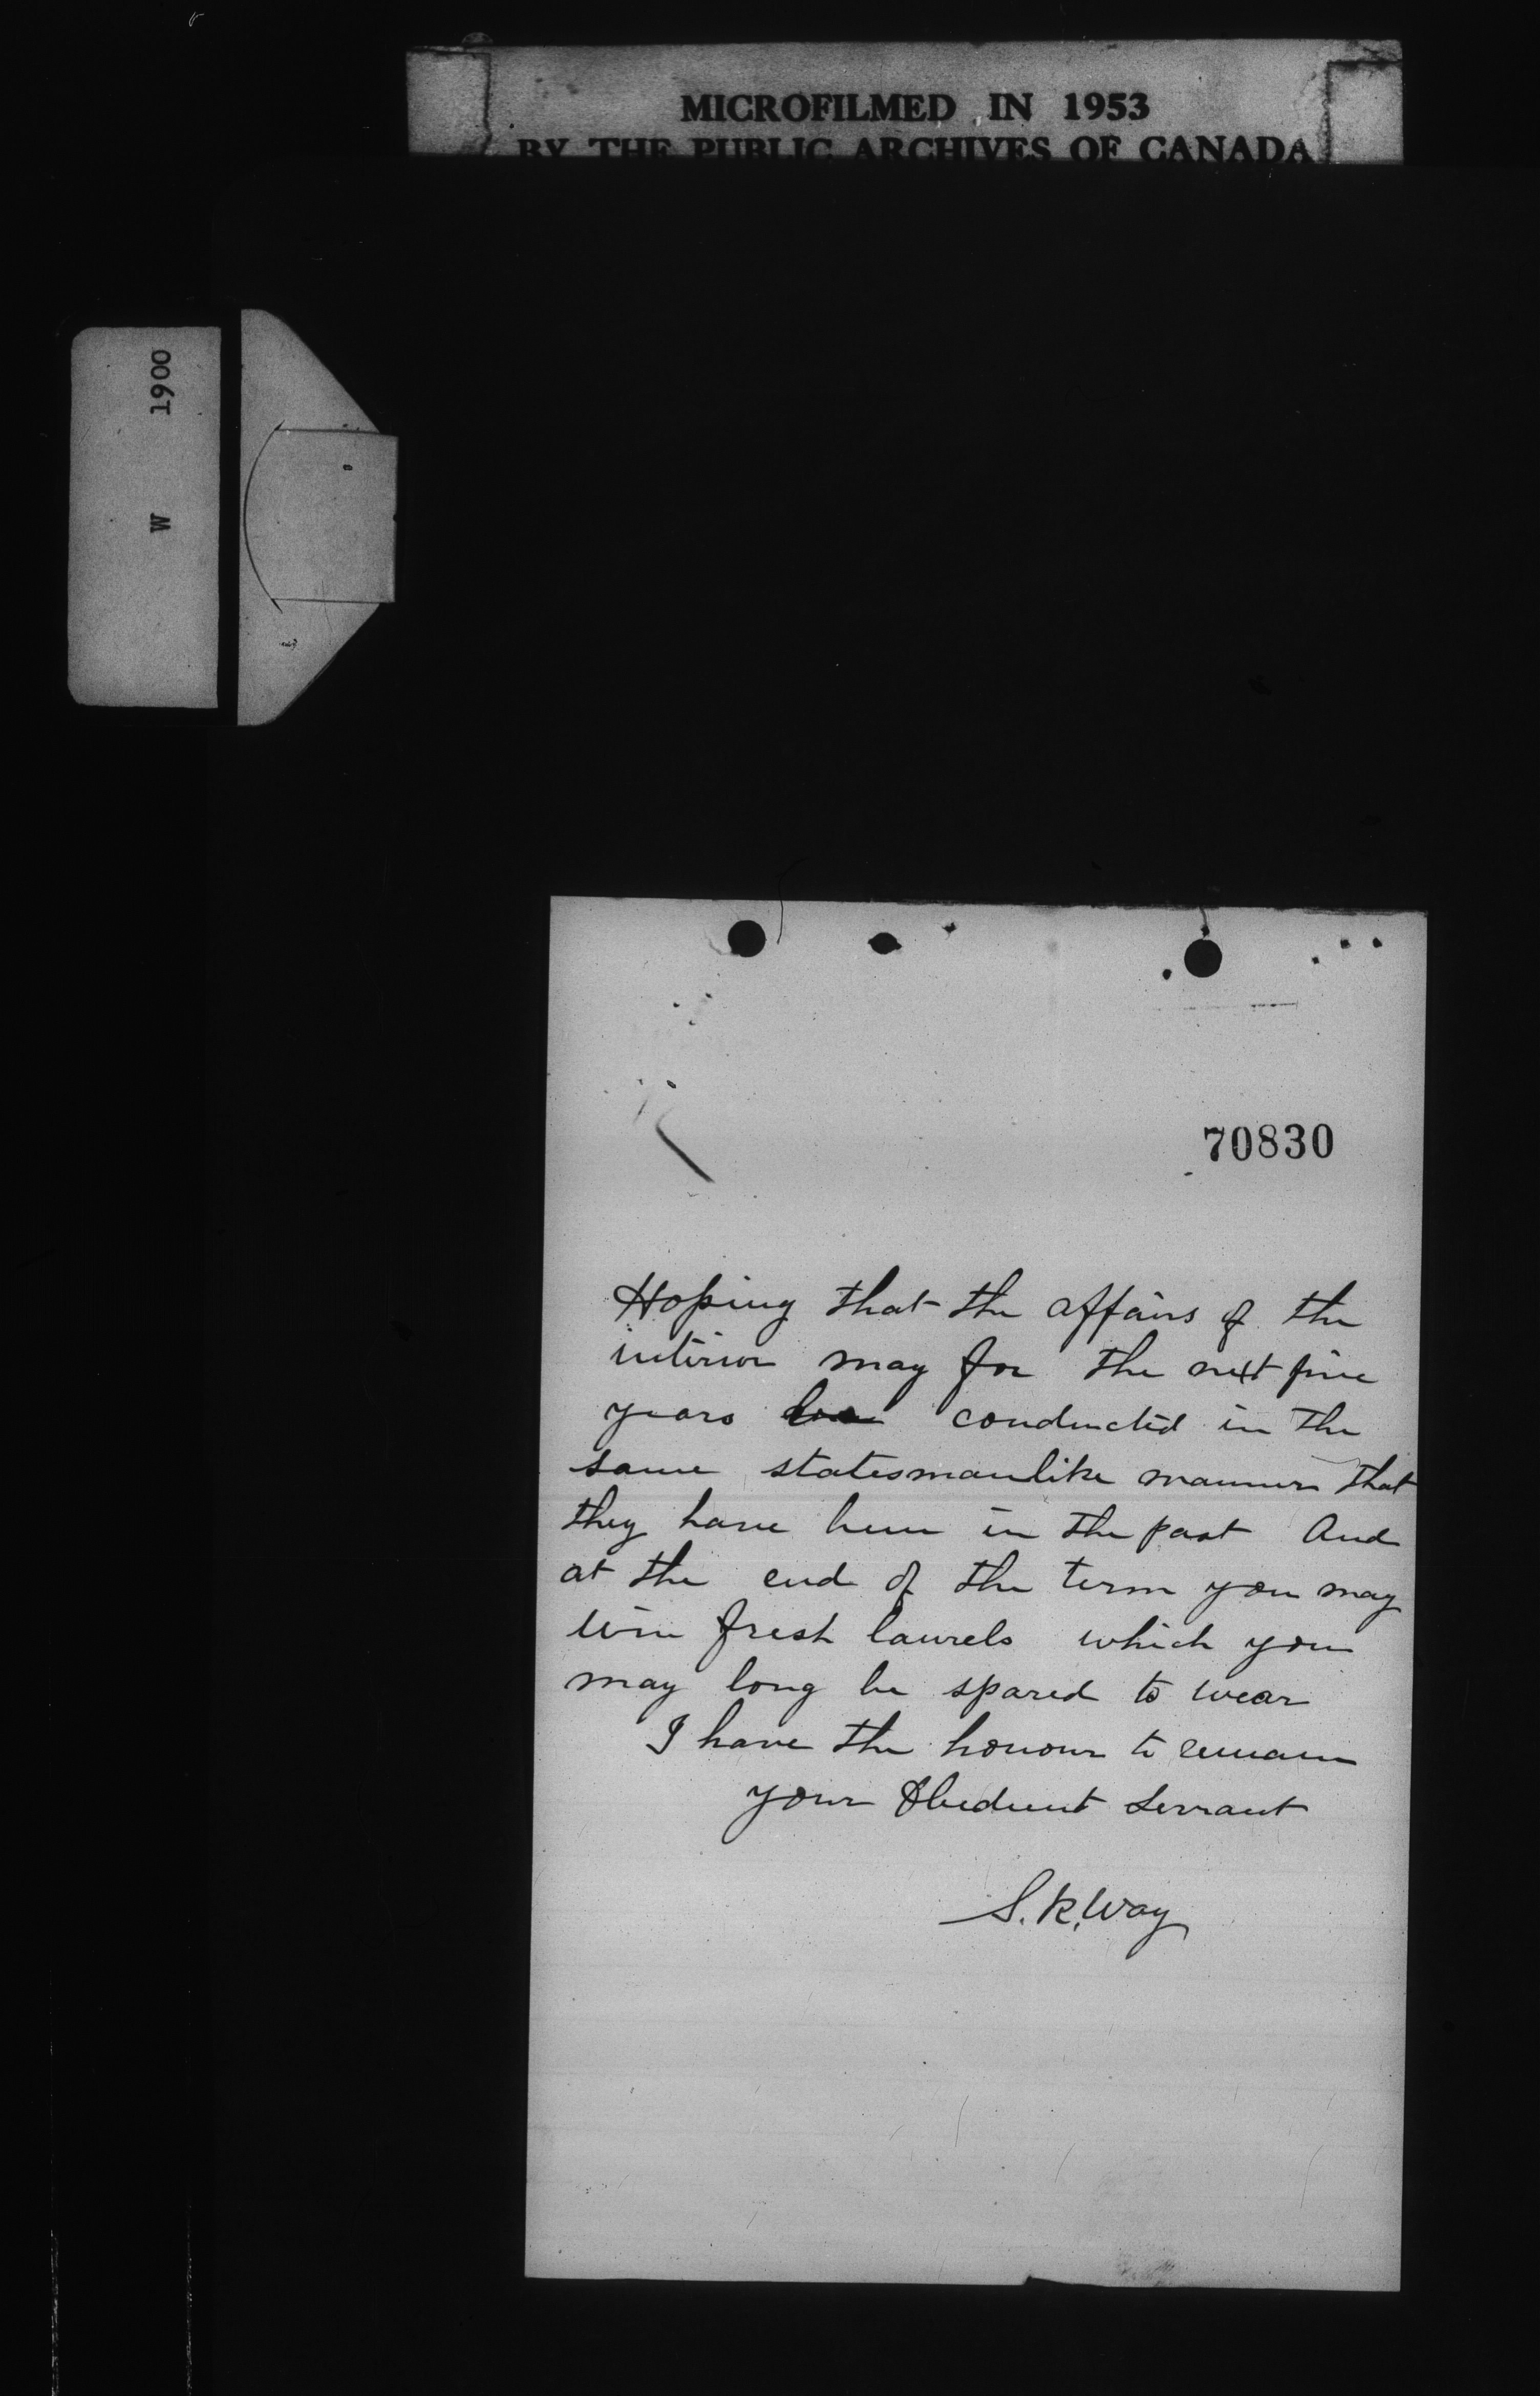 MICROFILMED IN 1953
BY THE PUBLIC ARCHIVES OF CANADA
W 1900
70830
Hoping that the affairs of the
interior may for the next five
years be conducted in the
same statesmanlike manner that
they have been in the past And
at the end of the term you may
win fresh laurels which you
may long be spared to wear
I have the honour to remain
your Obedient Servant
S. K. Way